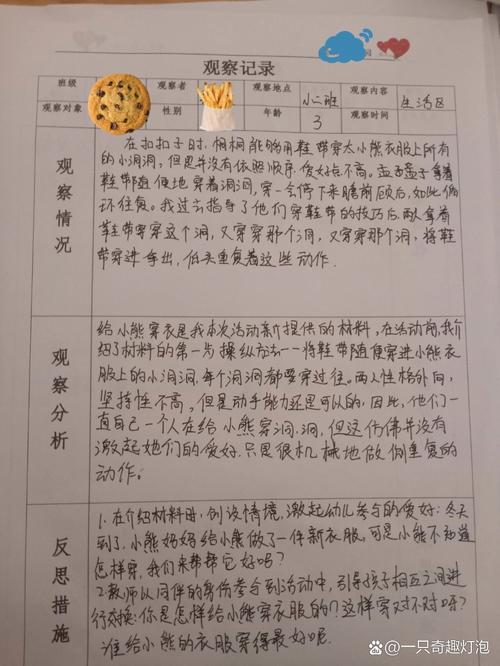 园
观察记录
班级 观察者 观察地点 小二班 观察内容 生活区
观察对象 性别 年龄 3 观察时间
观察情况
在扣扣子时，桐桐能够用鞋带穿太小熊衣服上所有
的小洞洞，但是并没有依照顺序，爱好也不高。孟子孟子拿着
鞋带随便地穿着洞洞，穿一会停下来瞻前顾后，如此循
环往复。我过去指导了他们穿鞋带的技巧后，两人拿着
鞋带穿穿这个洞，又穿穿那个洞，又穿穿那个洞，将鞋
带穿进拿出，低头重复着这些动作.
观察分析
给小熊穿衣是我本次活动新提供的材料，在活动前，我介
绍了材料的第一步操纵方法--将鞋带随便穿进小熊衣
服上的小洞洞，每个洞洞都要穿过往。两人性格外向，
坚持性不高，但是动手能力还是可以的，因此，他们一
直自己一个人在给小熊穿洞洞，但这仿佛并没有
激起她们的爱好，只是很机械地做倒重复的
动作。
反思措施
1.在介绍材料时，创设情境，激起幼儿参与的爱好：冬天
到了，小熊妈妈给小熊做了一件新衣服，可是小熊不知道
怎样穿，我们来帮帮它好吗？
2.教师以同伴的身份参与到活动中，引导孩子相互之间进
行交换：你是怎样给小熊穿衣服的？这样穿对不对呀？
谁给小熊的衣服穿得最好呢
@一只奇趣灯泡